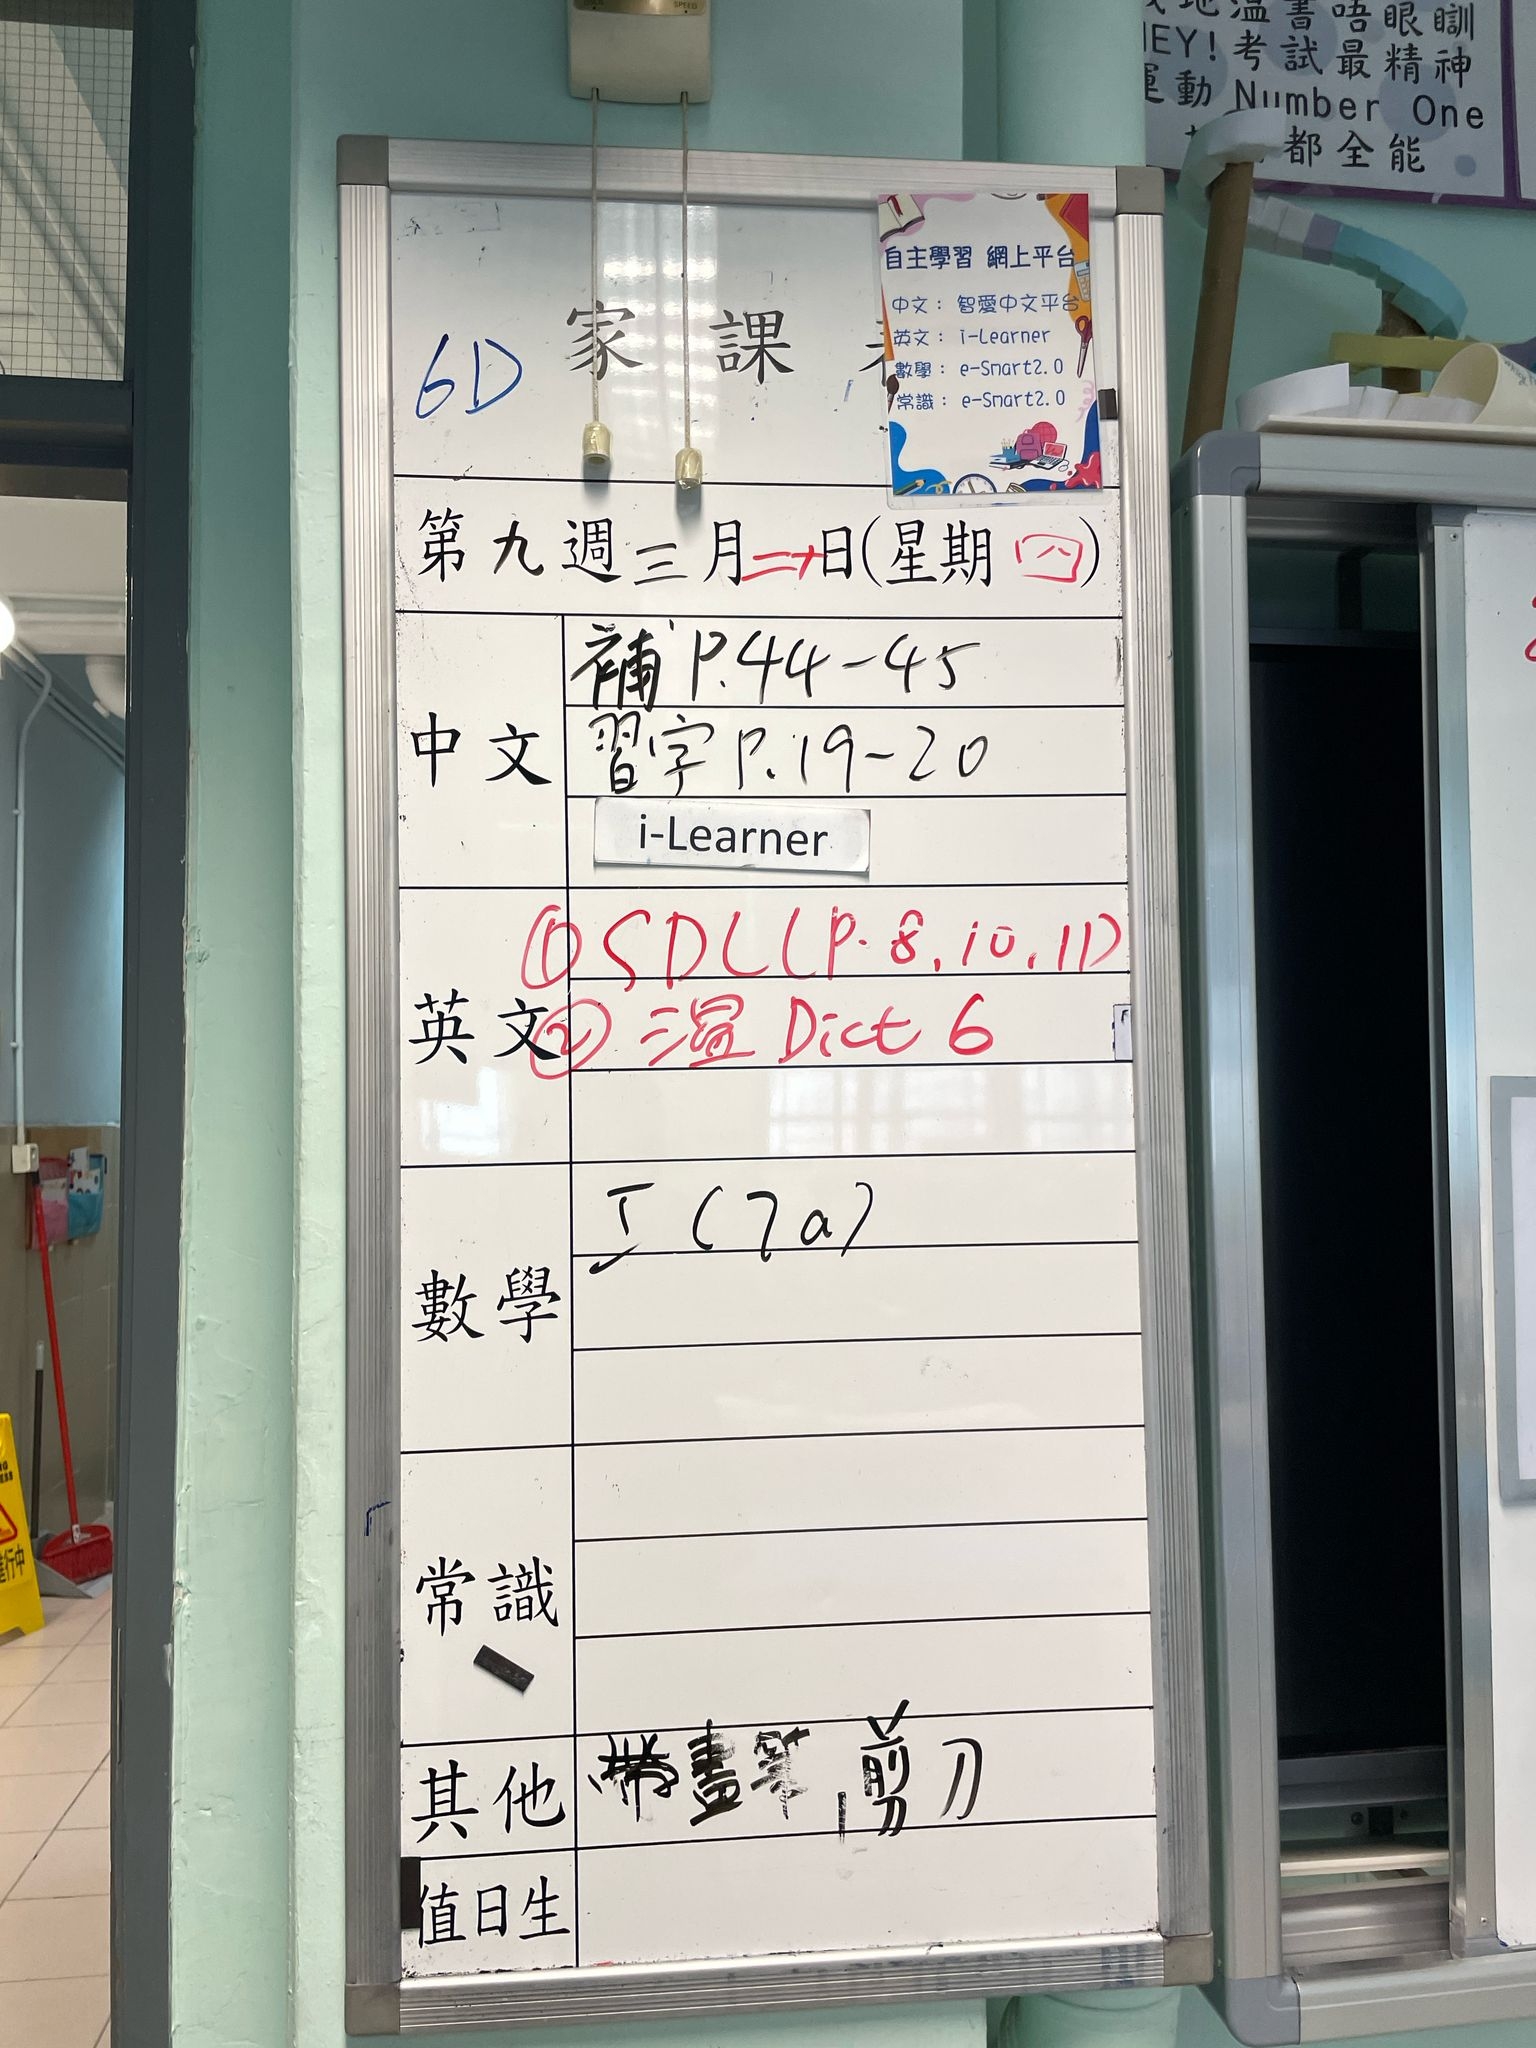 SPEED
溫書唔眼瞓
HEY!考試最精神
運動 Number One
都全能
自主學習 網上平台
中文： 智愛中文平台
英文： i-Learner
數學： e-Smart2.0
常識： e-Smart2.0
6D 家課
第九週三月二十日(星期四)
中文
補 P.44-45
習字 P.19-20
i-Learner
英文
① SDLL (P. 8, 10, 11)
② 溫 Dict 6
數學
工 (7a)
常識
其他
帶畫筆, 剪刀
值日生
進行中